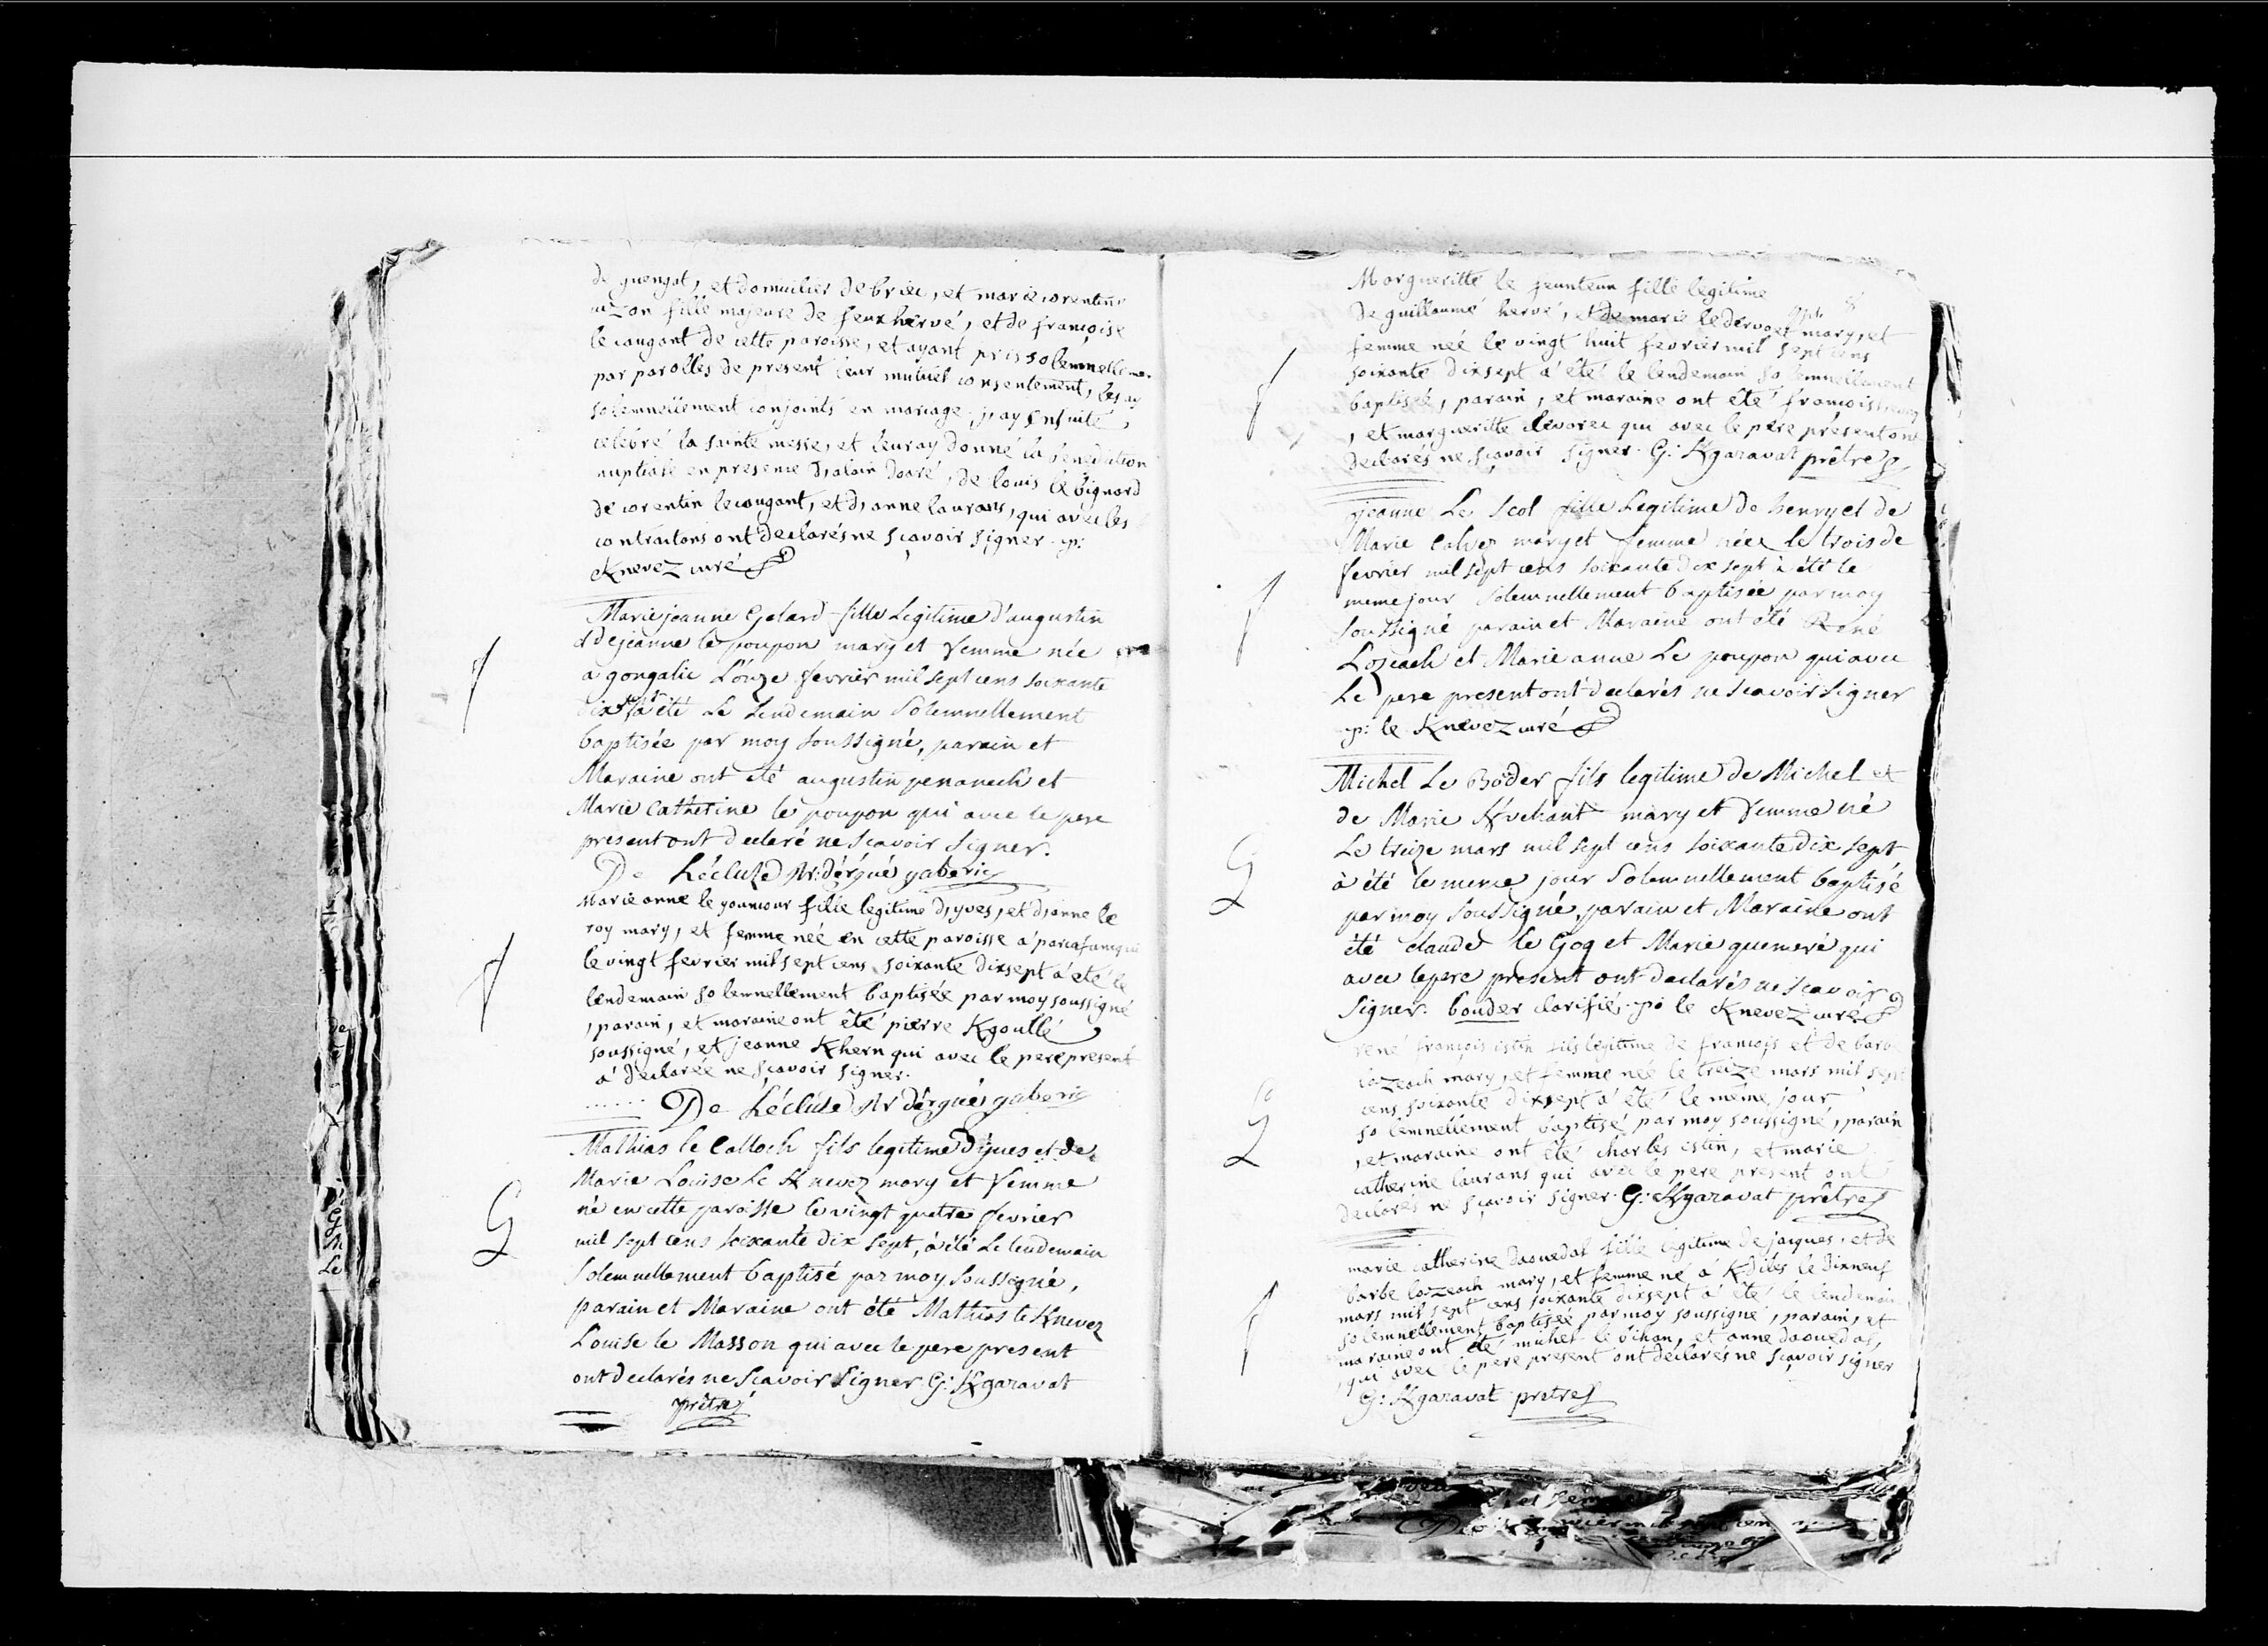 de guengat, et domicilier de briec, et marie corentine
cuzon fille majeure de feux hervé, et de françoise
le caugant de cette paroisse, et ayant pris solemnelleme
par parolles de present leur mutuel consentement, les ay
solemnellement conjoints en mariage. j'ay ensuite
celebré la sainte messe, et leur ay donné la benediction
nuptiale en presence d'alain doaré, de louis le bignard
de corentin lecaugant, et d'anne laurans, qui avec les
contractans ont declarés ne sçavoir signer. p:
Knevez curé
Marie jeanne Gelard fille Legitime d'augustin
et de jeanne le poupon mary et femme née
a gongalic L'onze fevrier mil sept cens soixante
dix sept a été Le Lendemain Solemnellement
baptisée par moy soussigné, parain et
Maraine ont été augustin penanech et
Marie Catherine le poupon qui avec le pere
present ont declaré ne scavoir signer.
De Lécluse Vr: d'érgué gaberic
Marie anne le youncour fille legitime d'yves, et d'anne le
roy mary, et femme neé en cette paroisse a
le vingt fevrier mil sept cens soixante dix sept a été le
lendemain solemnellement baptisée par moy soussigné
, parain, et maraine ont été pierre Kgoullé
soussigné, et jeanne Khern qui avec le pere present
a declarée ne sçavoir signer.
De Lécluse Vr d'érgué gaberic
Mathias le Calloch fils legitime d'yves et de
Marie Louise Le Knevez mary et femme
né en cette paroisse le vingt quatre fevrier
mil sept cens soixante dix sept, a été Le lendemain
Solemnellement baptisé par moy soussigné,
parain et Maraine ont été Mathias le Knevez
Louise le Masson qui avec le pere present
ont declarés ne scavoir signer. G: Kgaravat
prêtre
Margueritte le feunteun fille legitime
de guillaume hervé, et de marie le dervoet mary, et
femme neé le vingt huit fevrier mil sept cens
soixante dix sept a été le lendemain solemnellement
baptisée, parain, et maraine ont été françois
, et margueritte qui avec le pere present ont
declarés ne sçavoir signer. G: Kgaravat prêtre
jeanne Le Scol fille Legitime de henry et de
Marie Calvez mary et femme née le trois de
fevrier mil sept cens soixante dix sept a été le
meme jour solemnellement baptisée par moy
soussigné parain et Maraine ont été René
Lozeach et Marie anne Le poupon qui avec
Le pere present ont declarés ne scavoir signer
p: le Knevez curé
Michel Le Boder fils legitime de Michel et
de Marie Kvehant mary et femme né
Le treize mars mil sept cens soixante dix sept
à été le meme jour Solemnellement baptisé
par moy soussigné, parain et Maraine ont
été claude le Goq et Marie quemeré qui
avec le pere present ont declarés ne scavoir
signer. bouder clarifié. p: le Knevez curé
rené françois istin fils legitime de françois et de barbe
lozeach mary, et femme né le treize mars mil sept
cens soixante dix sept a été le même jour
solemnellement baptisé par moy soussigné, parain
, et maraine ont été charles istin, et marie
catherine laurans qui avec le pere present ont
declarés ne sçavoir signer. G: Kgaravat prêtre
marie catherine daouedal fille legitime de jacques, et de
barbe lozeach mary, et femme né a Kdiles le dixneuf
mars mil sept cens soixante dixsept a été le lendemain
solemnellement baptisée par moy soussigné, parain, et
maraine ont été michel le bihan, et anne daouedal,
, qui avec le pere present ont declarés ne sçavoir signer
G: Kgaravat prêtre